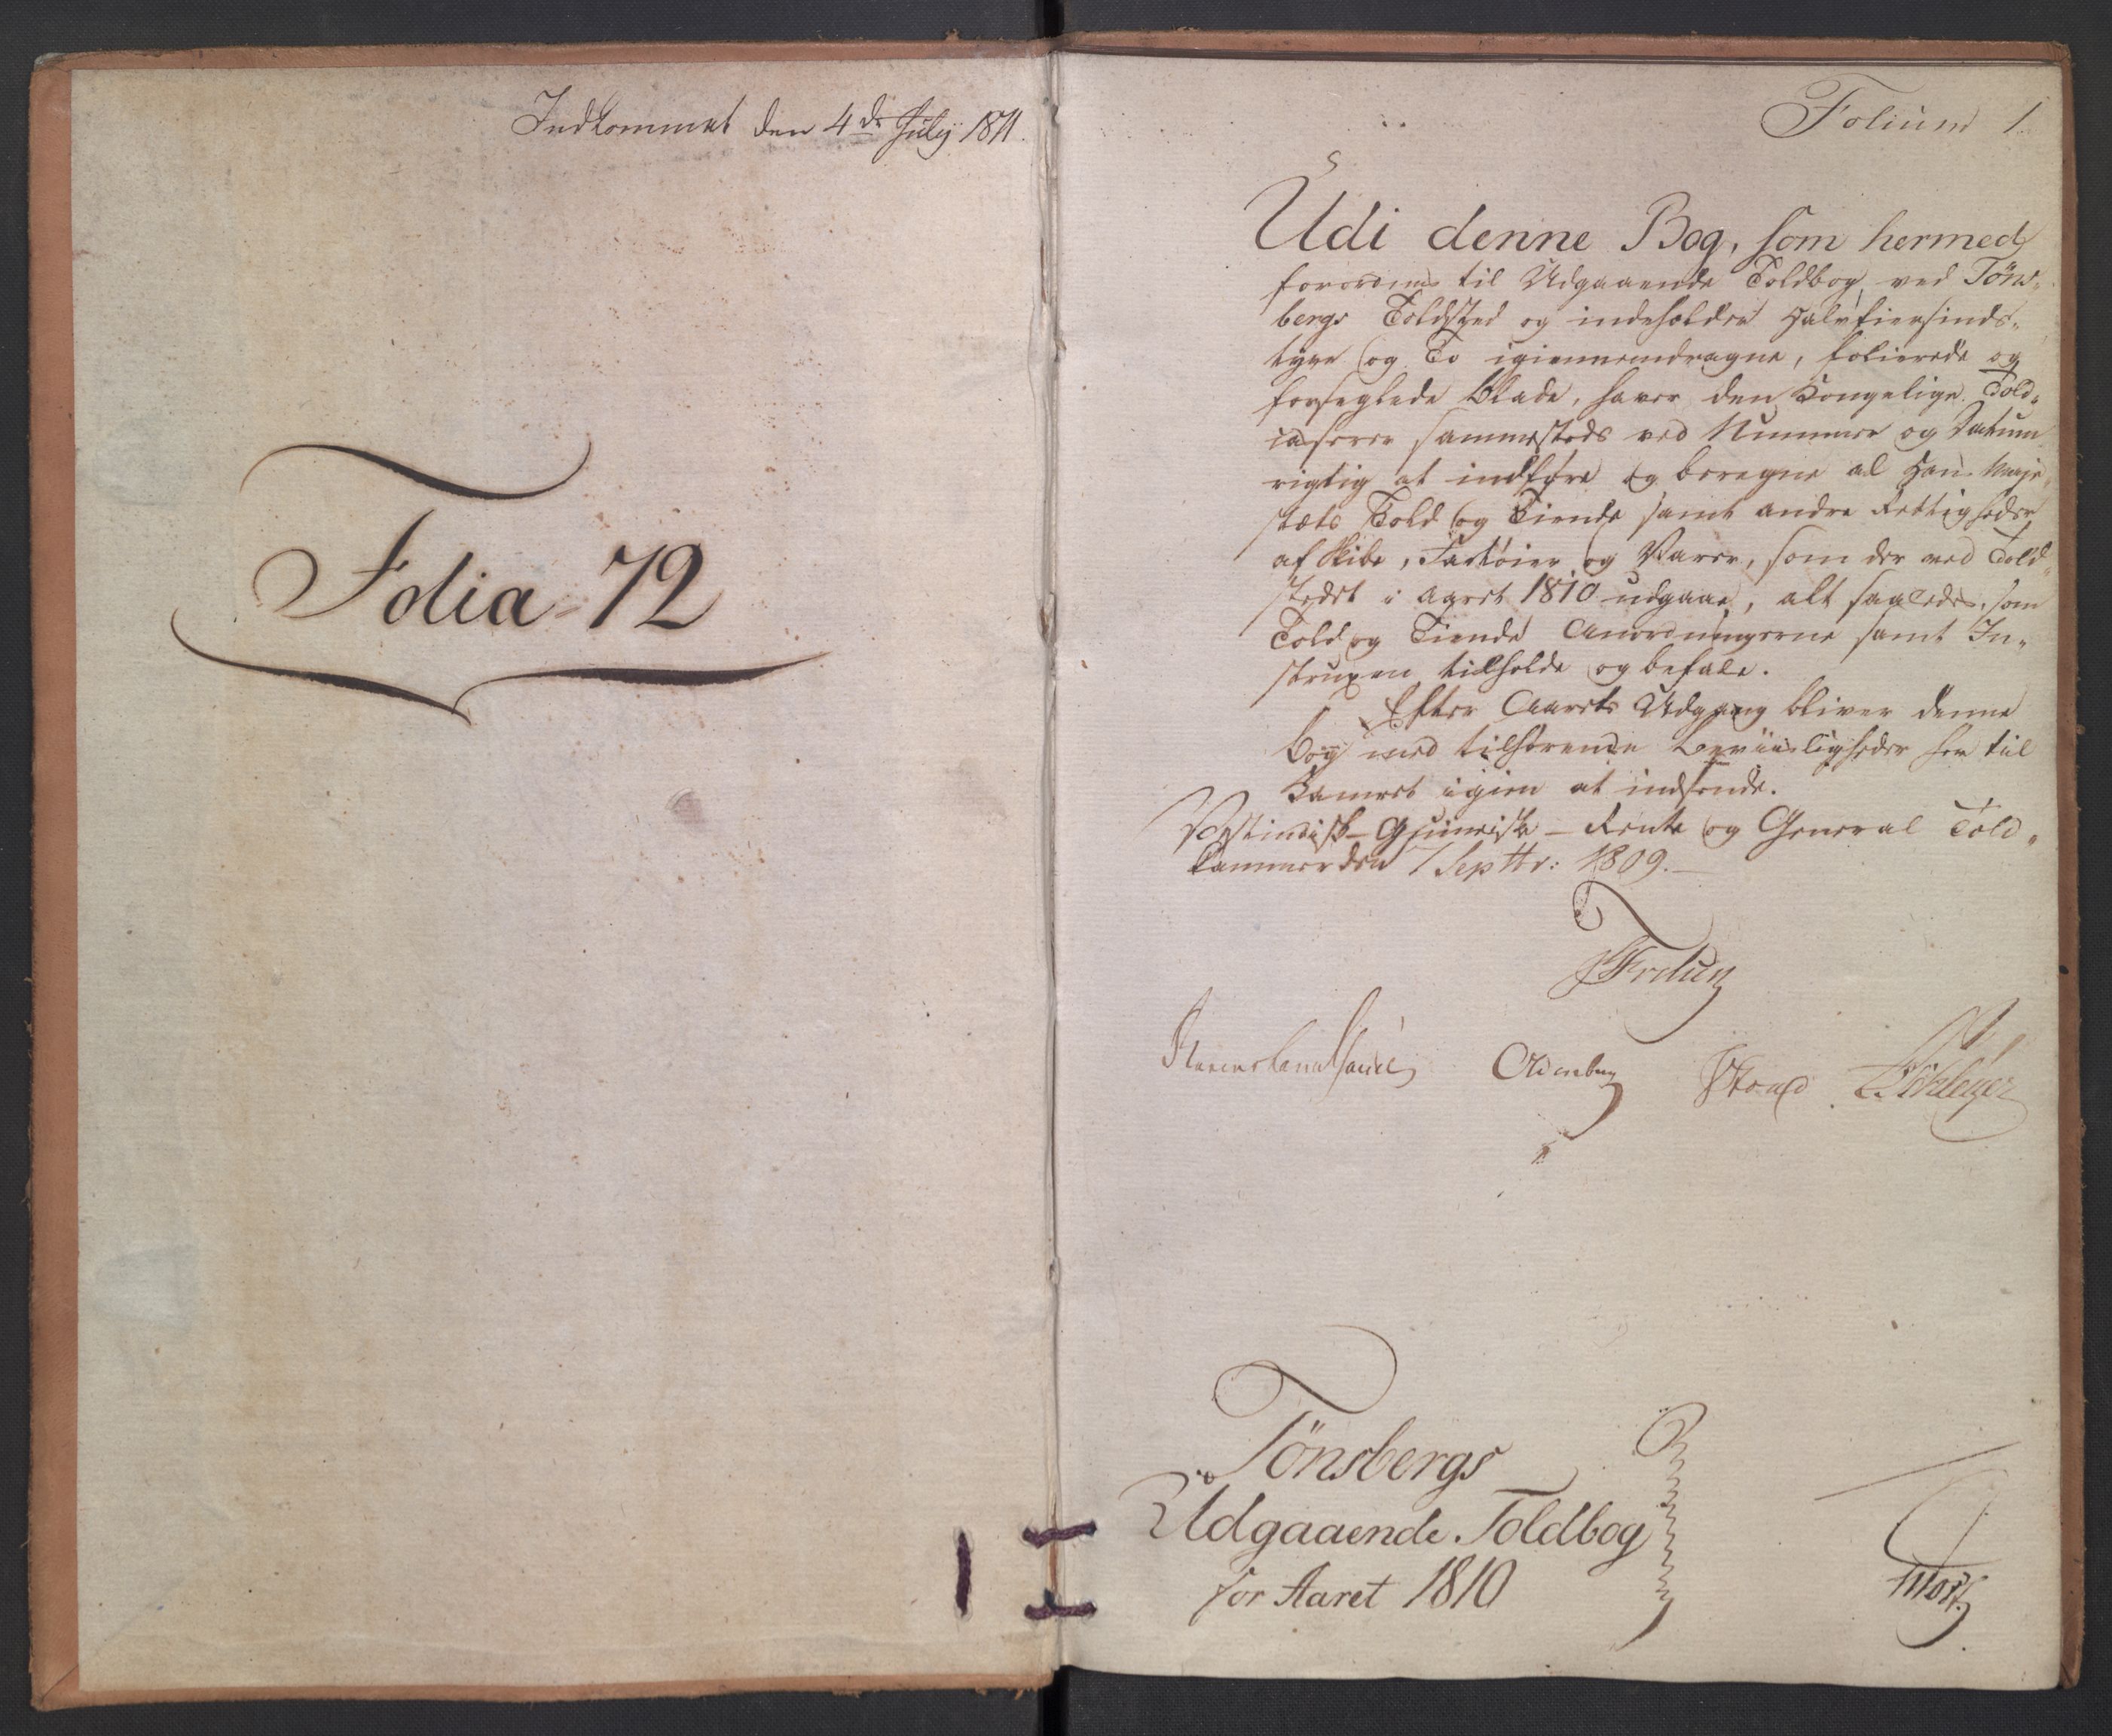 Indkommet den 4de July 1811.
Folia 72
Folium 1.
Udi denne Bog, som hermed
forordnes til Udgaaende Toldbog ved Töns-
bergs Toldsted og indeholder Halvfiersinds-
tyve og To igiennemdragne, folierede og
forseglede Blade, haver den Kongelige Told-
casserer sammesteds ved Nummer og Datum
rigtig at indføre og beregne al Hans Maje-
stæts Told og Tiende samt andre Rettigheder
af Skibe, Fartøier og Varer, som der ved Told-
stedet i Aaret 1810 udgaae, alt saaledes, som
Told og Tiende Anordningerne samt In-
struxen tilholde og befale.
Efter Aarets Udgang bliver denne
Bog med tilhørende Beviisligheder her til
Kamret igien at indsende.
Vestindisk-Guineiske-Rente og General Told-
kammer den 1 Septbr: 1809.
Oldenburg
Tönsbergs
Udgaaende Toldbog
for Aaret 1810